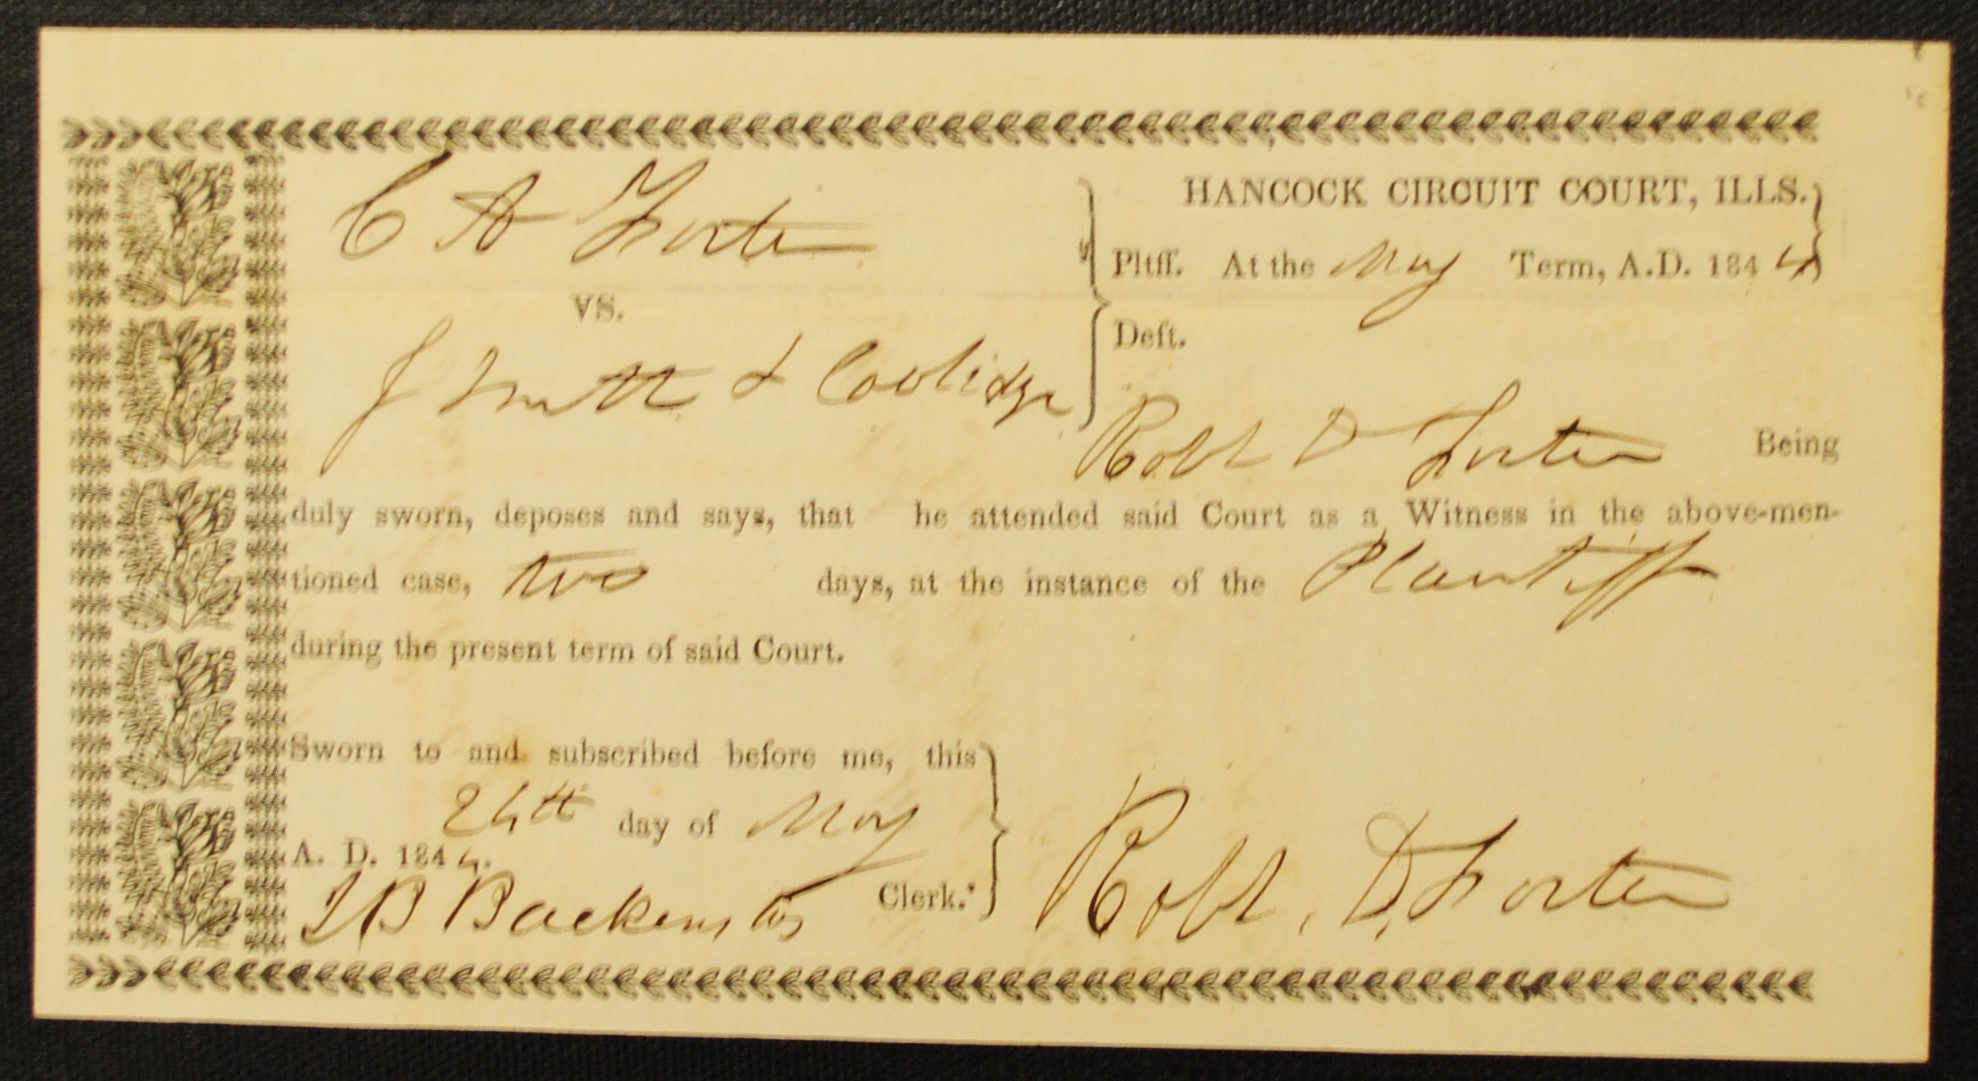 C A Foster
HANCOCK CIRCUIT COURT, ILLS.
Pltff. At the May Term, A.D. 1844
VS.
Deft.
J Smith & Coolidge
Robt D Foster Being
duly sworn, deposes and says, that he attended said Court as a Witness in the above-men-
tioned case, two days, at the instance of the Plaintiff
during the present term of said Court.
Sworn to and subscribed before me, this
24th day of May
A. D. 1844.
Backenstos Clerk.
Robt. D. Foster